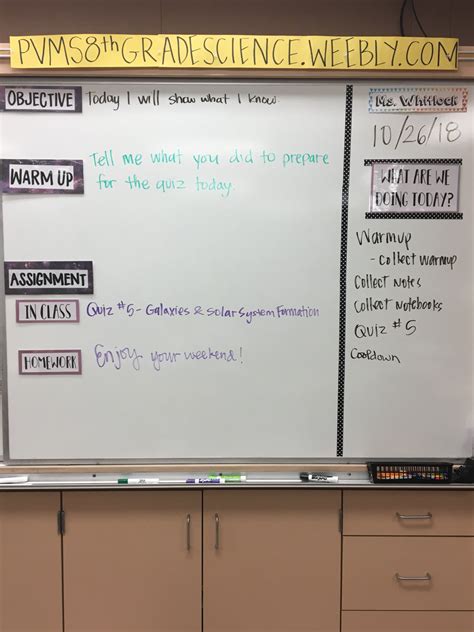 PVMS8thGRADESCIENCE.WEEBLY.COM
OBJECTIVE Today I will show what I know.
WARM UP
Tell me what you did to prepare
for the quiz today.
ASSIGNMENT
IN CLASS Quiz #5 - Galaxies & Solar System Formation
HOMEWORK Enjoy your weekend!
Ms. Whitlock
10/26/18
WHAT ARE WE
DOING TODAY?
Warmup
- collect warmup
Collect Notes
Collect Notebooks
Quiz #5
Cooldown